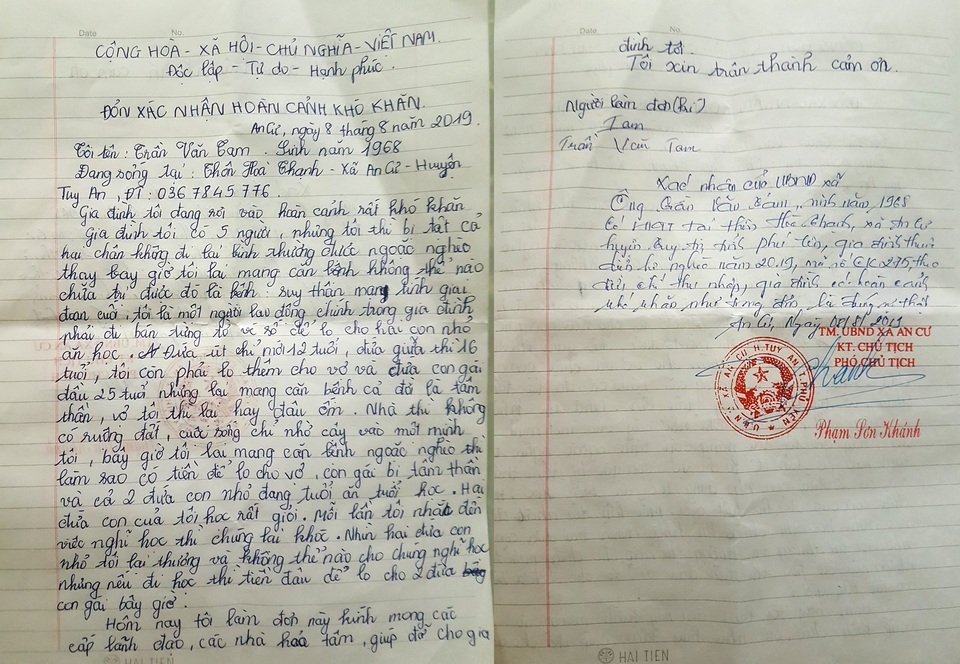 Date No.
CỘNG HOÀ - XÃ HÔI - CHỦ NGHĨA - VIẾT NAM.
Đôc lâp - Tự do - Hạnh phúc.
ĐỎN XÁC NHẬN HOÀN CẢNH KHÓ KHĂN.
An Cứ, ngày 8 tháng 8 năm 2019.
Tôi tên : Trần Văn Tam . Sinh năm 1968
Đang sống tại : Thôn Hoà Thạnh - Xã An Cứ - Huyện
Tuy An , ĐT : 036 7845 776.
Gia đình tôi đang rơi vào hoàn cảnh rất khó khăn
Gia đình tôi có 5 người , nhưng tôi thì bi tât cả
hai chân không đi lai bình thường được ngoặc nghèo
thay bây giờ tôi lai mang căn bênh không thể nào
chữa trị được đó là bênh : suy thân mang tính giai
đoan cuối , tôi là môt người lao đông chính trong gia đình
phải đi bán từng tờ vé số để lo cho hai con nhỏ
ăn học . Đứa út chỉ mới 12 tuổi , đứa giữa thì 16
tuổi , tôi còn phải lo thêm cho vở và đứa con gái
đầu 25 tuổi nhưng lai mang căn bênh cả đời là tâm
thần , vở tôi thì lai hay đâu ốm . Nhà thì không
có ruộng đất , cuôc sống chỉ nhờ cây vào môt mình
tôi , bây giờ tôi lai mang căn bênh ngoặc nghèo thì
làm sao có tiền để lo cho vở , con gái bi tâm thần
và cả 2 đứa con nhỏ đang tuổi ăn tuổi học . Hai
đứa con của tôi học rất giỏi . Mỗi lần tôi nhắc đến
viêc nghỉ học thì chúng lai khóc . Nhìn hai đứa con
nhỏ tôi lai thương và không thể nào cho chúng nghỉ học
nhưng nếu đi học thì tiền đâu để lo cho 2 đứa
con gái bây giờ .
Hôm nay tôi làm đơn này kính mong các
cấp lãnh đao , các nhà hảo tâm , giúp đỡ cho gia
HAI TIEN
Date No.
đình tôi .
Tôi xin trân thành cảm ơn .
Người làm đơn (kí)
Tam
Trần Văn Tam
Xác nhận của UBND xã
Ông Trần Văn Tám , sinh năm 1968
Có HKTT tại thôn Hòa Thạnh, xã An Cư
huyện Tuy An, tỉnh Phú Yên, gia đình thuộc
diện hộ nghèo năm 2019, mã số CK0275, theo
tiêu chí thu nhập, gia đình có hoàn cảnh
khó khăn như trong đơn, là đúng sự thật
An Cư, Ngày 2019
TM. UBND XÃ AN CƯ
KT. CHỦ TỊCH
PHÓ CHỦ TỊCH
U.B.N.D XÃ AN CƯ H.TUY AN T.PHÚ YÊN
Phạm Sơn Khánh
HAI TIEN